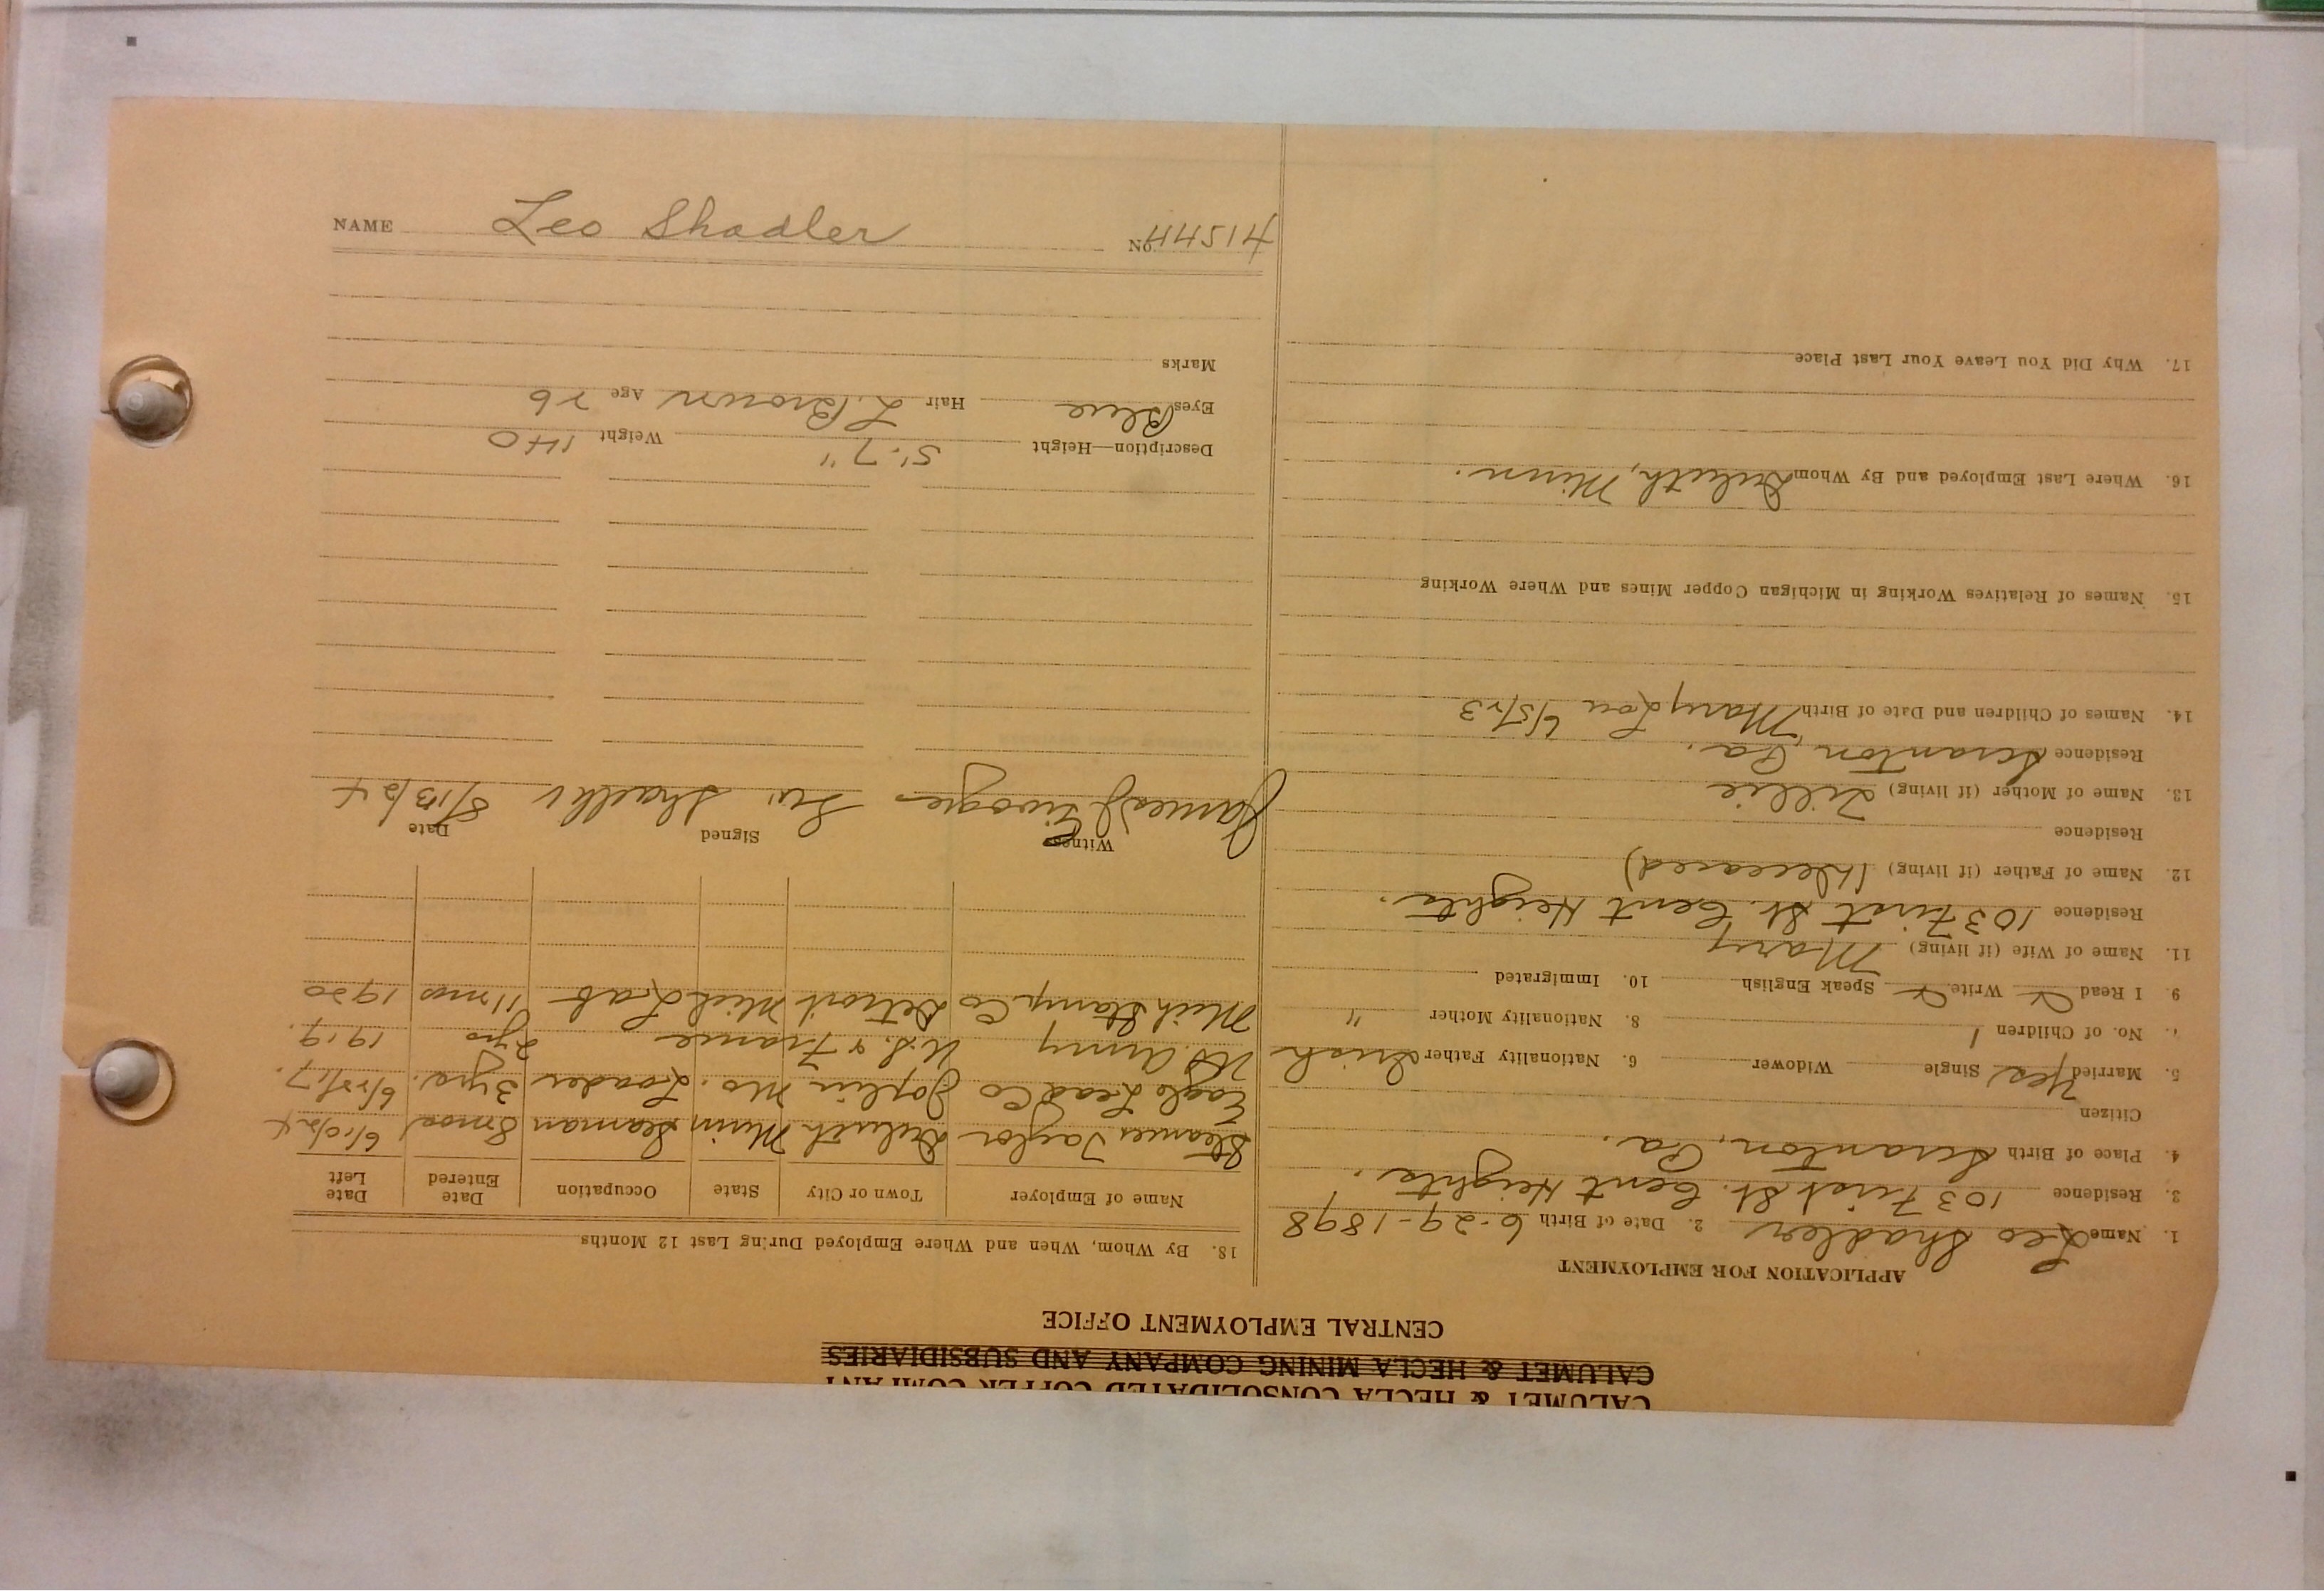 CALUMET & HECLA CONSOLIDATED COPPER COMPANY
CALUMET & HECLA MINING COMPANY AND SUBSIDIARIES
CENTRAL EMPLOYMENT OFFICE
APPLICATION FOR EMPLOYMENT
1. Name Leo Shadler 2. Date of Birth 6-29-1898
3. Residence 103 First St. Cent Heights.
4. Place of Birth Scranton, Pa.
Citizen
5. Married Yes Single Widower 6. Nationality Father Irish
7. No. of Children 1 8. Nationality Mother "
9. I Read Write Speak English 10. Immigrated
11. Name of Wife (if living) Mary
Residence 103 First St. Cent Heights.
12. Name of Father (if living) (Deceased)
Residence
13. Name of Mother (if living) Lillie
Residence Scranton, Pa.
14. Names of Children and Date of Birth Mary Lou 6/5/23
15. Names of Relatives Working in Michigan Copper Mines and Where Working
16. Where Last Employed and By Whom Duluth, Minn.
17. Why Did You Leave Your Last Place
18. By Whom, When and Where Employed During Last 12 Months
Name of Employer Town or City State Occupation Date Entered Date Left
Steamer Taylor Duluth Minn Seaman 8 mos 6/10/24
Eagle Lead Co Joplin Mo. Loader 3 yrs. 6/  /17.
US Army U.S. & France 2 yrs 1919.
Mich Stamp. Co Detroit Mich Lab 11 mos 1920
Witness Signed Date
James J. Leo Shadler 8/13/24
Description—Height 5'-7" Weight 140
Eyes Blue Hair L. Brown Age 26
Marks
NAME Leo Shadler NO. 41544